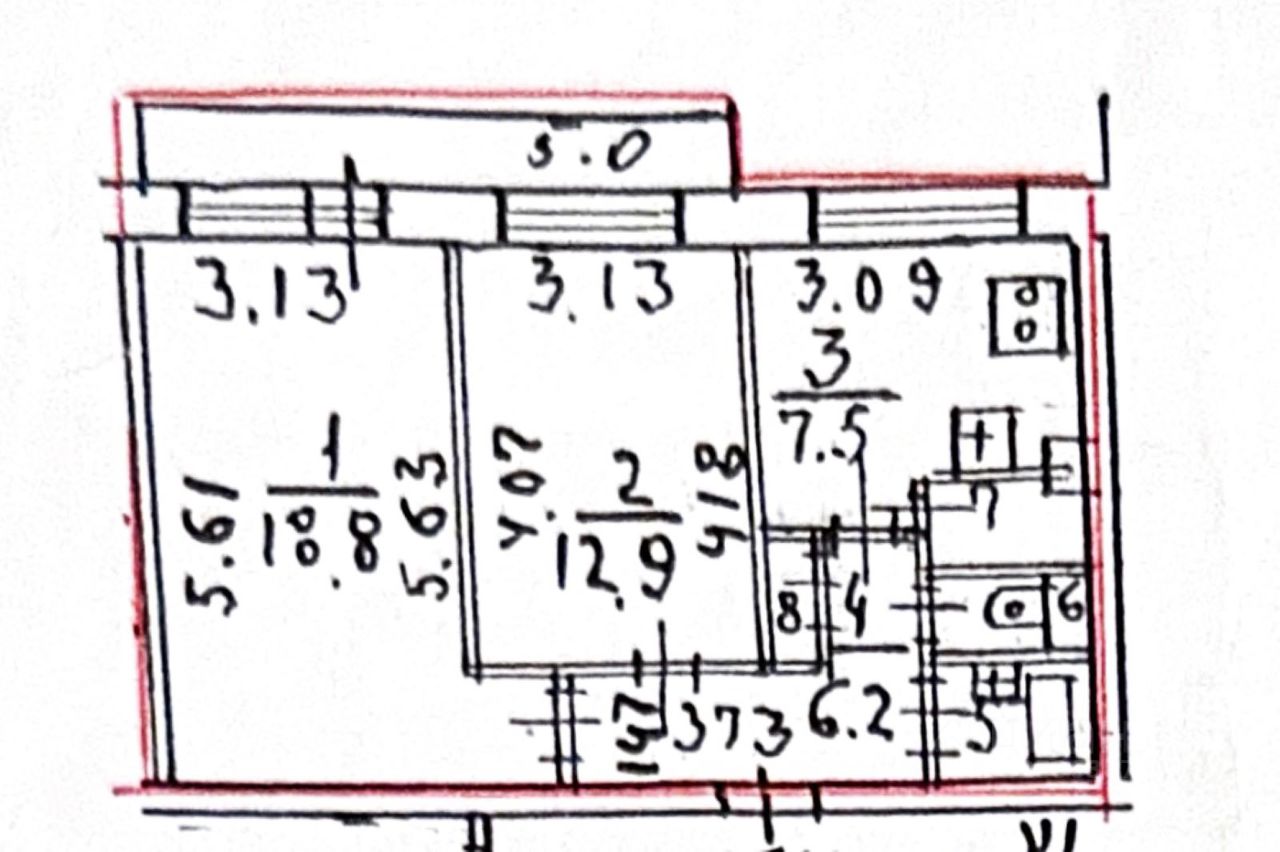 5.0
3.13
3.13
3.09
3
7.5
1
18.8
5.61
5.63
2
12.9
4.07
4.18
7
8
4
6.2
6
1.47
373
5